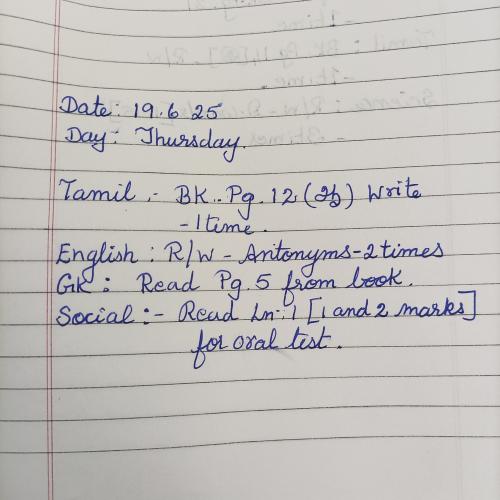 Date: 19.6.25
Day: Thursday.
Tamil :- BK. Pg. 12 (உ) Write
- 1 time.
English : R/W - Antonyms - 2 times
GK : Read Pg. 5 from book.
Social :- Read Ln: 1 [1 and 2 marks]
for oral test.